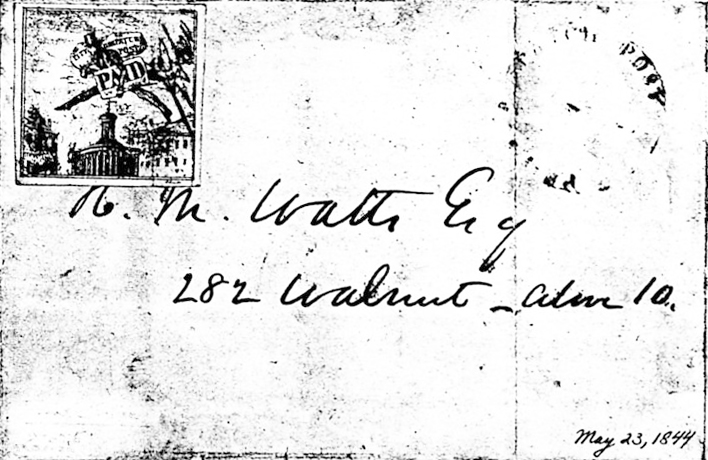 PAID
POST
H. M. Watts Esq
282 Walnut - above 10.
May 23, 1844